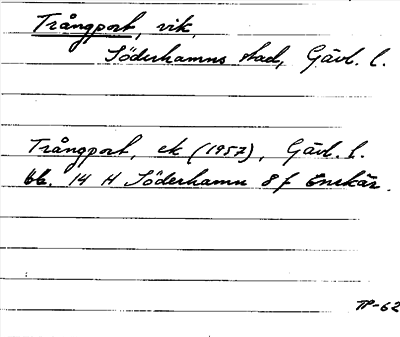 Trångport, vik,
Söderhamns stad, Gävl. l.
Trångport, ek (1957), Gävl. l.
bl. 14 H Söderhamn 8 f Enskär.
TP-62